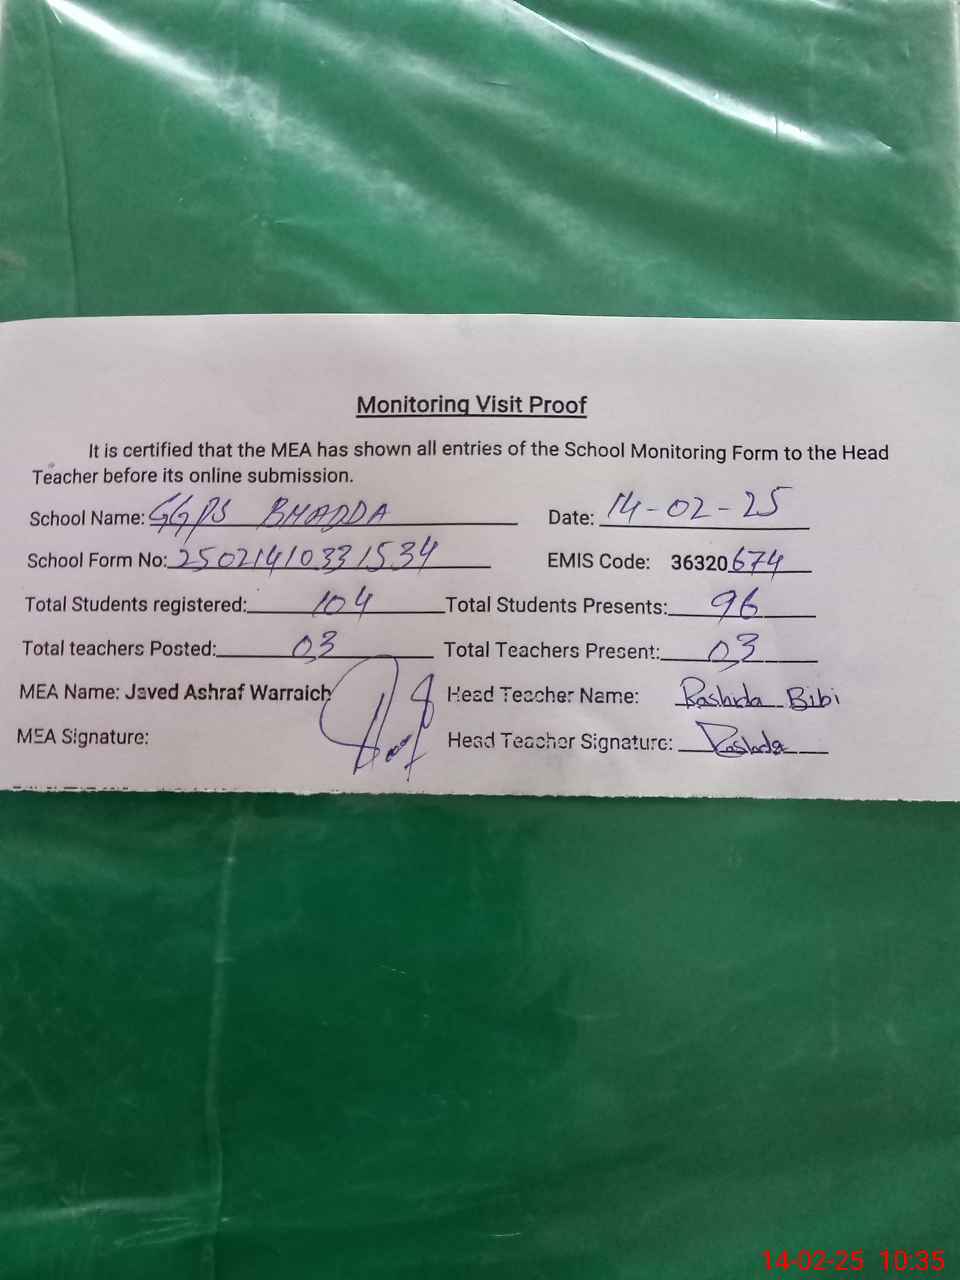 Monitoring Visit Proof
It is certified that the MEA has shown all entries of the School Monitoring Form to the Head
Teacher before its online submission.
School Name: GGPS BHADDA Date: 14-02-25
School Form No: 25021410331534 EMIS Code: 36320674
Total Students registered: 104 Total Students Presents: 96
Total teachers Posted: 03 Total Teachers Present: 03
MEA Name: Javed Ashraf Warraich Head Teacher Name: Rashida Bibi
MEA Signature: Head Teacher Signature: Rashida
14-02-25 10:35